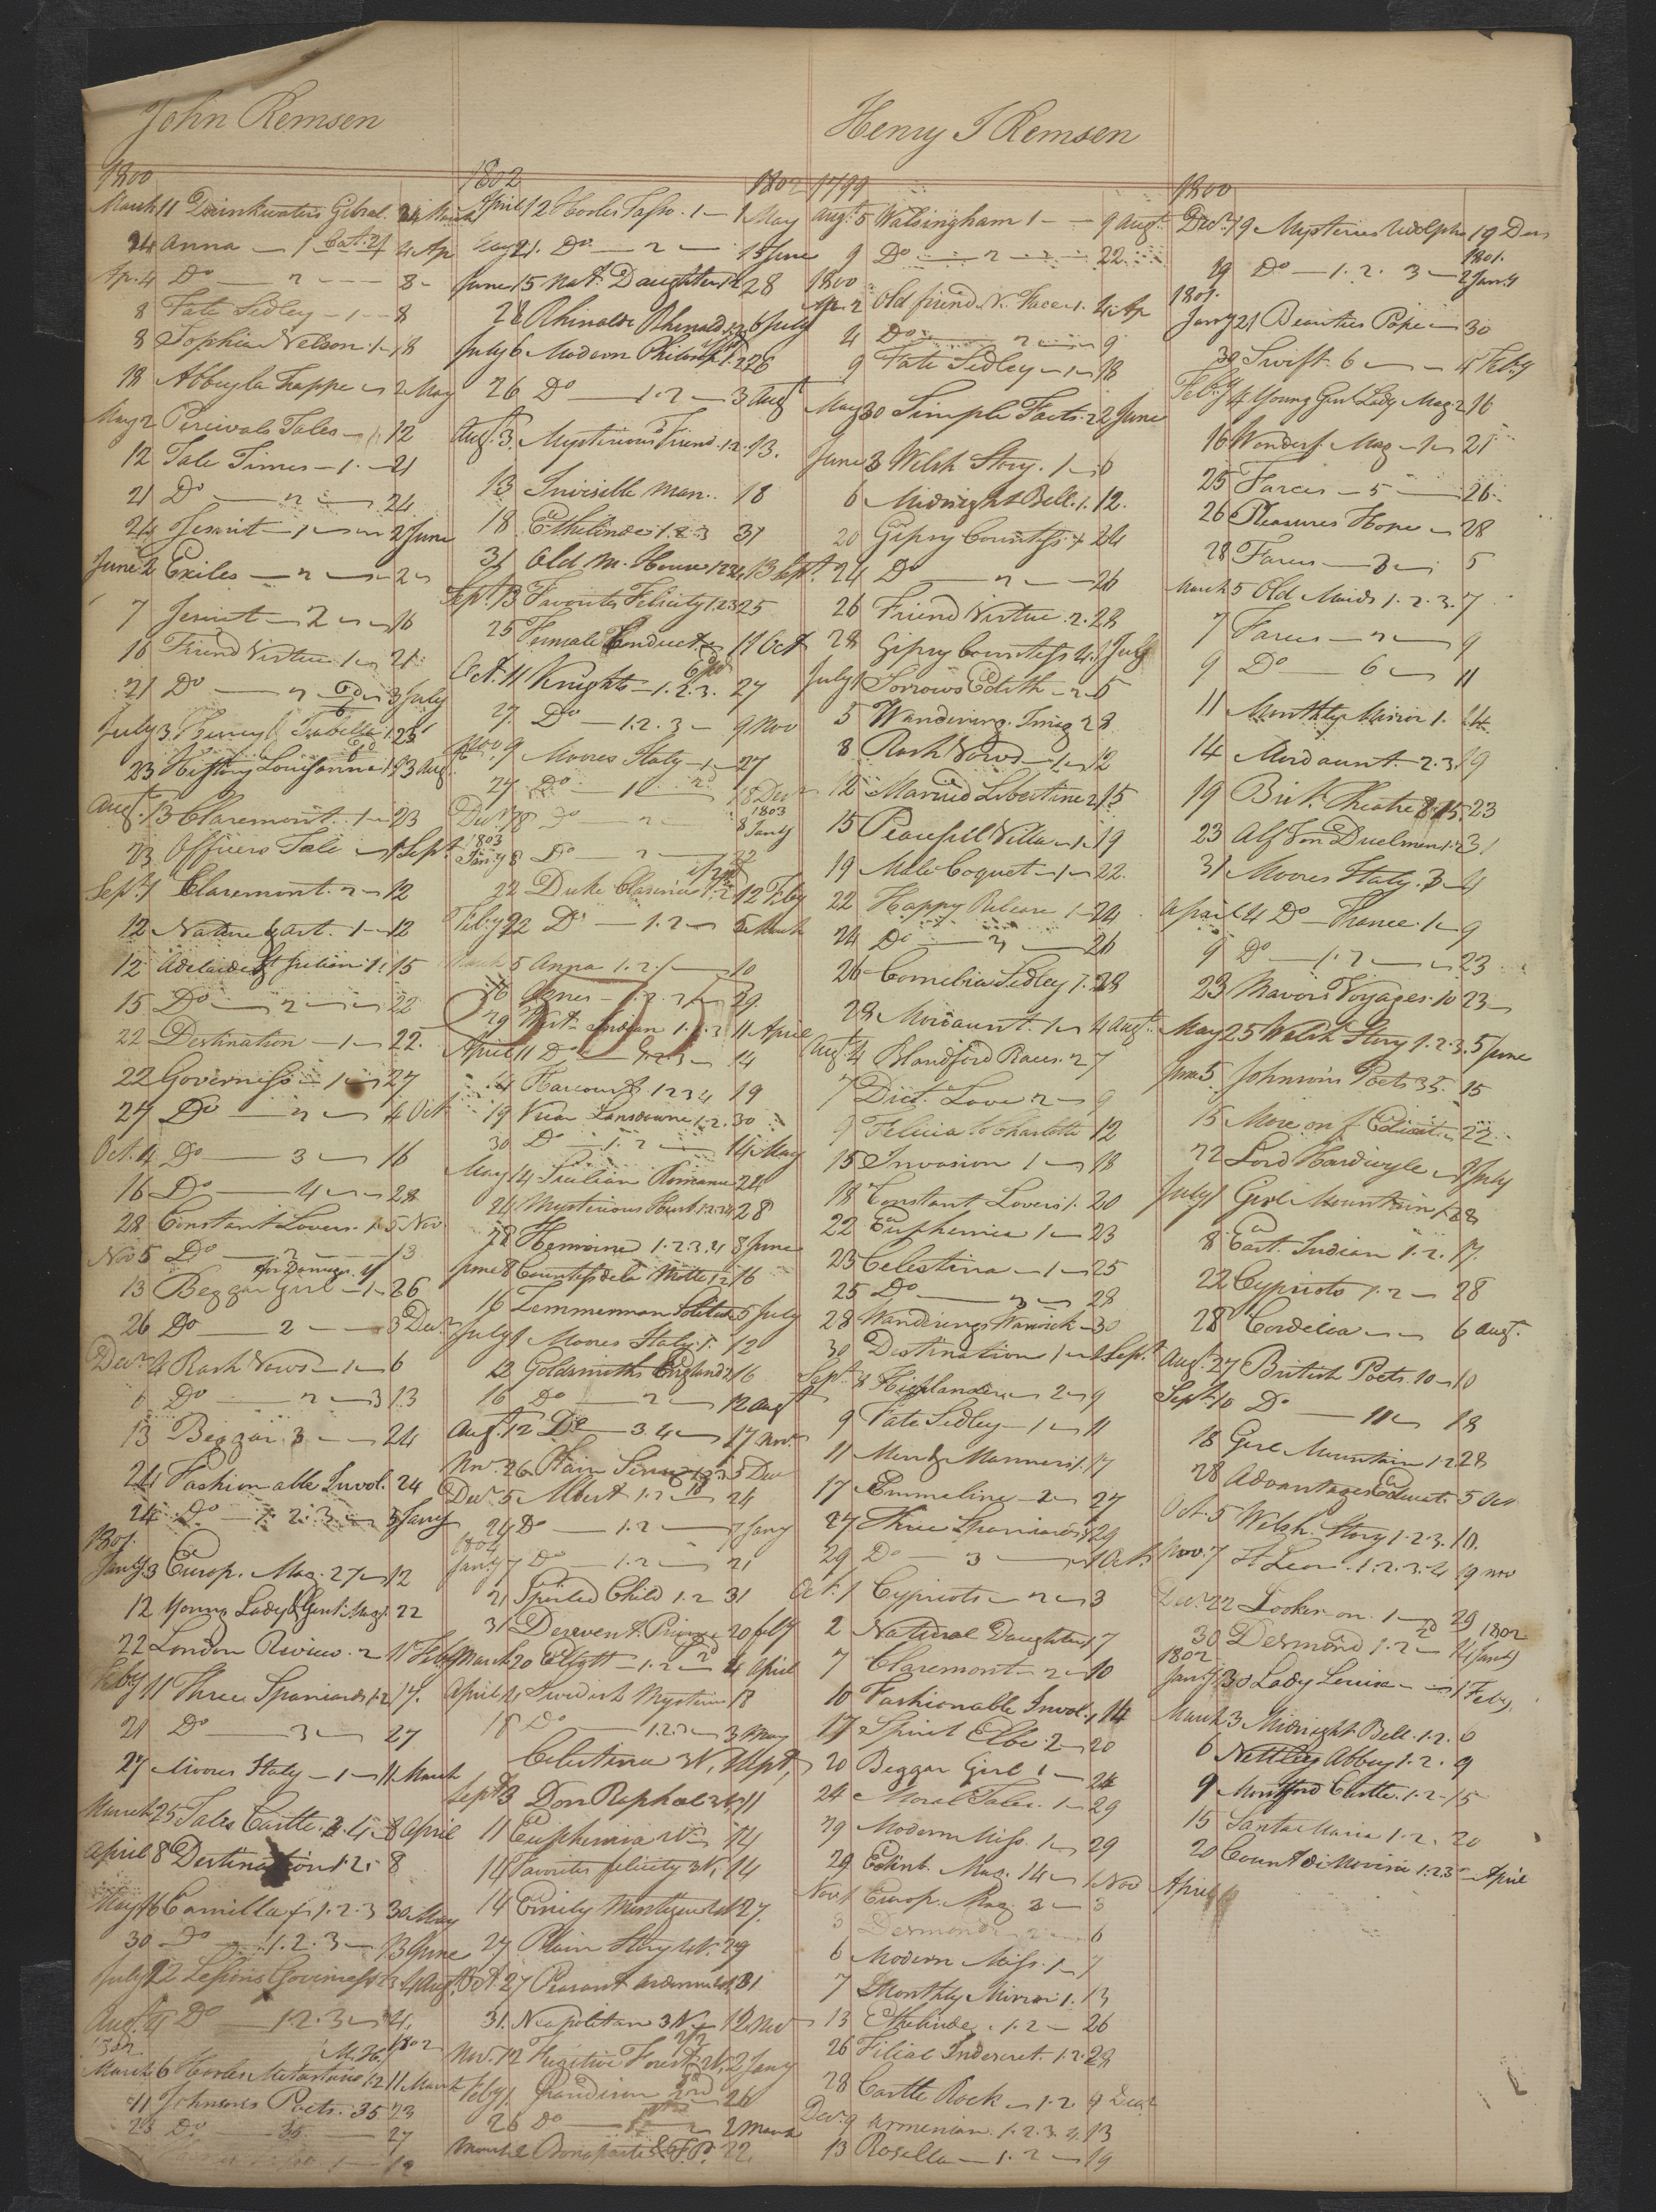 John Remsen
1800
March 11 Drinkwaters Gibral. 24 March
24 Anna — 1 4 Ap
Ap. 4 Do — 2 — 8
8 Fate Sedley — 1 — 8
8 Sophia Nelson 1 — 18
18 Abby la Trappe 2 May
May 2 Percivals Tales — 12
12 Tale Times — 1 — 21
21 Do — 2 — 24
24 Jesuit — 1 — 2 June
June 2 Exiles — 2 — 2
7 Jesuit — 2 — 16
16 Friend Virtue 1 — 21
21 Do — 2 — 3 July
July 3 23
23 History Louisanna 13 Aug
Augt 13 Claremont 1 — 23
23 Officers Tale — 1 Sept
Sept. 1 Claremont 2 — 12
12 Nature & Art. 1 — 12
12 Adelaide St Julian 1. 15
15 Do — 2 — 22
22 Destination — 1 — 22.
22 Governess — 1 — 27
27 Do — 2 — 4 Oct
Oct. 4 Do — 3 — 16
16 Do — 4 — 28
28 Constant Lovers 1. 5 Nov.
Nov 5 Do — 2 — 13
13 Beggar Girl — 1 — 26
26 Do — 2 — 3 Decr
Decr 4 Rash Vows — 1 — 6
6 Do — 2 — 13
13 Beggar 3 — 24
24 Fashionable Invol. 24
24 Do — 1. 2. 3. — 3 Jany
1801.
Jany 3 Europ. Mag. 27 — 12
12 Young Lady & Gent. Mag. 22
22 London Review. 2 11 Feby
Feby 11 Three Spaniards 1.2 17.
21 Do — 3 — 27
27 Moores Italy — 1 — 11 March
March 25 Tales Castle. 3. 4 — 8 April
April 8 Destination 1.2. 8
May 16 Camilla 1. 2. 3 30 May
30 Do — 1. 2. 3 — 13 June
July 22 Lessons Governess 1.2.3 4 Augt
Aug. 4 Do — 1. 2. 3 — 4.
1802 1802
March 6 Hooles Metastasio 1.2 11 March
11 Johnsons Poets. 35 23
23 Do — 36 — 27
1802 1802
April 12 Hooles Tasso. 1 — 1 May
May 21. Do — 2 — 15 June
June 15 Nat. Daughter 1.2 28
28 Rhinaldo Rhinaldi 1.2 6 July
July 6 Modern Philosop 1.2 26
26 Do — 1. 2 — 3 Augt
Augt 3. Mysterious Friend. 1.2. 13.
13 Invisible Man. 18
18 Ethelinde 1. 2. 3 31
31 Old M. House 1234. 13 Sept.
Sept. 13 Favorites Felicity 1.2.3 25
25 Female Conduct 11 Oct
Oct. 11 Knights — 1. 2. 3. 27
27 Do — 1. 2. 3 — 9 Nov
Nov 9 Moores Italy — 1 — 27
27 Do — 1 — 18 Decr
1803
Decr 18 Do — 2 — 8 Jany
1803
Jany 8 Do — 2 — 22
22 Duke Clarence 1. 2 12 Feby
Feby 22 Do — 1. 2 — 5 March
March 5 Anna 1. 2. — 10
16 Agnes — 1. 2. 3 29
29 West Indian 1. 2. 3 11 April
April 11 Do — 1. 2. 3 — 14
14 Harcourt. 1 2 3 4 19
19 Vicar Lansdowne 1. 2. 30
30 Do — 1. 2 — 14 May
May 14 Sicilian Romance 24
24 Mysterious Husb. 1.2.3.4 28
28 Hermione 1. 2. 3. 4 8 June
June 8 Countess de la Motte 1.2 16
16 Zemmerman Solitude 5 July
July 1 Moores Italy. 1. 12
12 Goldsmiths England 2 16
16 Do — 2 — 12 Augt
Augt. 12 Do — 3. 4 — 17 Nov.
Nov. 26 Plain Sense 1. 2. 3 5 Decr
Decr. 5 Albert 1. 2 24
24 Do — 1. 2 — 7 Jany
1804
Jany 7 Do — 1. 2 — 21
21 Spoiled Child 1. 2 31
31 20 Feby
March 20 — 1. 2 — 4 April
April 4 Swedish Mysteries 18
18 Do — 1. 2. 3 — 3 May
Celestina 3 V. Sept,
Sept 8 Don Raphael 3 V. 11
11 Euphemia 14
14 Favorites felicity 3 V. 14
14 Emily Montague 27.
27 Plain Story 29
Oct. 27 Peasant Ardennes 31
31. Neapolitan 3 V. 12 Nov
Nov. 12 Fugitive Forest 2 Jany
Feby 1. Grandison 26
26 Do — 2 March
March 2 Bonaparte 22.
Henry S Remsen
1799
Augt. 5 Walsingham 1 — 9 Augt.
9 Do — 2 — 22
1800
Ap. 2 Old friend N. Faces 1. 4 Ap
4 Do — 2 — 9
9 Fate Sedley — 1 — 18
May 30 Simple Facts. 2 2 June
June 3 Welsh Story. 1 — 6
6 Midnight Bell. 1. 12.
20 Gipsy Countess 24
24 Do — 2 — 26
26 Friend Virtue. 2. 28
28 Gipsy Countess 4. 1 July
July 1 Sorrows Edith — 2 — 5
5 Wandering. Imag 2 8
8 Rash Vows — 1 — 12
12 Married Libertine 2 15
15 Peacefull Villa — 1 — 19
19 Male Coquet — 1 — 22.
22 Happy Release 1 — 24
24 Do — 2 — 26
26 Cornelia Sedley 1. 28
28 Mordaunt. 1 — 4 Augt
Augt 4 Blandford Races. 2 7
7 Dict. Love 2 — 9
9 Felicia to Charlotte 12
15 Invasion 1 — 18
18 Constant Lovers 1. 20
22 Euphemia 1 — 23
23 Celestina — 1 — 25
25 Do — 2 — 28
28 Wanderings Warwick — 30
30 Destination 1 — 1 Sept.
Sept. 3 Highlander — 2 — 9
9 Fate Sedley — 1 — 11
11 Men & Manners 1. 17
17 Emmeline — 2 — 27
27 Three Spaniards 29
29 Do — 3 — 1 Oct.
Oct. 1 Cypriots — 2 — 3
2 Natural Daughter 7
7 Claremont — 2 — 10
10 Fashionable Invol. 1 14
17 Spirit Elbe. 2 — 20
20 Beggar Girl 1 — 24
24 Moral Tales. 1 — 29
29 Modern Miss. 1 — 29
29 Edinb. Mag. 14 — 1 Nov
Nov 1 Europ. Mag 3 — 3
3 Desmond 2 — 6
6 Modern Miss. 1 — 7
7 Monthly Mirror 1. 13
13 Ethelinde. 1. 2 — 26
26 Filial Indiscret. 1. 2. 28
28 Castle Rock — 1. 2. 9 Decr
Decr. 9 Armenian. 1. 2. 3. 4. 13
13 Rosella — 1. 2 — 19
1800
Decr. 19 Mysteries Udolpho 19 Decr
1801.
29 Do — 1. 2. 3 — 2 Jany
1801.
Jany 21 Beauties Pope — 30
30 Swift. 6 — 4 Feby
Feby 4 Young Gent Lady Mag. 2 16
16 Wonderf. Mag — 1 — 21
25 Farces — 5 — 26
26 Pleasures Hope — 28
28 Farces — 3 — 5
March 5 Old Maids 1. 2. 3. 7
7 Farces — 2 — 9
9 Do — 6 — 11
11 Monthly Mirror 1. 14
14 Mordaunt. 2. 3. 19
19 Brit. Theatre 8. 15. 23
23 Alf Von Duelmen 1. 2 31
31 Moores Italy. 3 — 4
April 4 Do — France. 1 — 9
9 Do — 1. 2 — 23
23 Mavors Voyages. 10 23
May 25 Welsh Story 1. 2. 3. 5 June
June 5 Johnson's Poets 35. 15
15 More on f. Educat. 22
22 Lord Hardwyle — 1 July
July 1 Girl Mountain 1. 28
8 East Indian 1. 2. 17.
22 Cypriots 1. 2 — 28
28 Cordelia — 6 Augt.
Augt. 27 British Poets. 10 — 10
Sept. 10 Do — 11 — 18
18 Girl Mountain 1. 2 28
28 Advantages Educat. 5 Oct
Oct. 5 Welsh. Story 1. 2. 3. 10.
Nov. 7 St Leon. 1. 2. 3. 4 19 Nov
Decr. 22 Looker-on. 1 — 29
1802
30 Desmond 1. 2 — 14 Jany
1802
Jany 30 Lady Louisa — 1 Feby,
March 3 Midnight Bell. 1. 2. 6
6 Nettley Abbey 1. 2. 9
9 Montford Castle. 1. 2. 15
15 Santa Maria 1. 2. 20
20 Count di Novini 1. 2. 3 — April
April